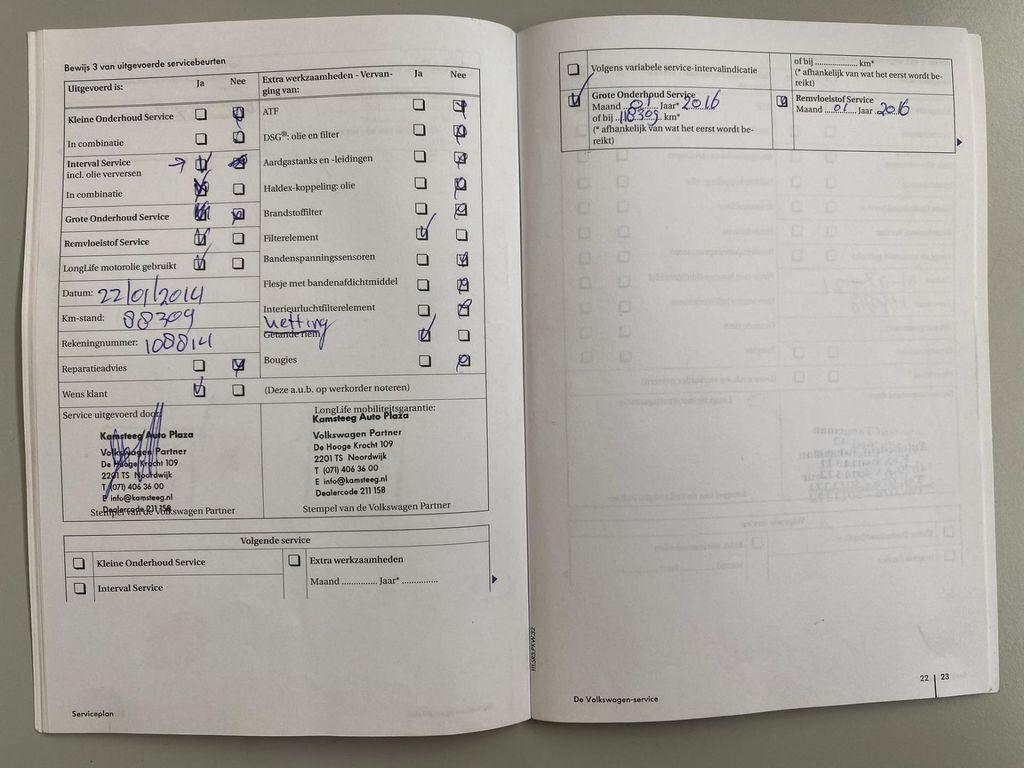 Bewijs 3 van uitgevoerde servicebeurten
Uitgevoerd is: Ja Nee
Kleine Onderhoud Service
In combinatie
Interval Service
incl. olie verversen
In combinatie
Grote Onderhoud Service
Remvloeistof Service
LongLife motorolie gebruikt
Datum: 22/01/2014
Km-stand: 88309
Rekeningnummer: 108814
Reparatieadvies
Wens klant
Extra werkzaamheden - Vervan- Ja Nee
ging van:
ATF
DSG®: olie en filter
Aardgastanks en -leidingen
Haldex-koppeling: olie
Brandstoffilter
Filterelement
Bandenspanningssensoren
Flesje met bandenafdichtmiddel
Interieurluchtfilterelement
Ketting
Getande riem
Bougies
(Deze a.u.b. op werkorder noteren)
Service uitgevoerd door
Kamsteeg Auto Plaza
Volkswagen Partner
De Hooge Krocht 109
2201 TS Noordwijk
T (071) 406 36 00
E info@kamsteeg.nl
Dealercode 211 158
Stempel van de Volkswagen Partner
LongLife mobiliteitsgarantie:
Kamsteeg Auto Plaza
Volkswagen Partner
De Hooge Krocht 109
2201 TS Noordwijk
T (071) 406 36 00
E info@kamsteeg.nl
Dealercode 211 158
Stempel van de Volkswagen Partner
Volgende service
Kleine Onderhoud Service
Interval Service
Extra werkzaamheden
Maand ............. Jaar* .............
Serviceplan
Volgens variabele service-intervalindicatie
Grote Onderhoud Service
Maand 01 Jaar* 2016
of bij 118309 km*
(* afhankelijk van wat het eerst wordt be-
reikt)
of bij .................... km*
(* afhankelijk van wat het eerst wordt be-
reikt)
Remvloeistof Service
Maand 01 Jaar 2016
De Volkswagen-service
22 | 23